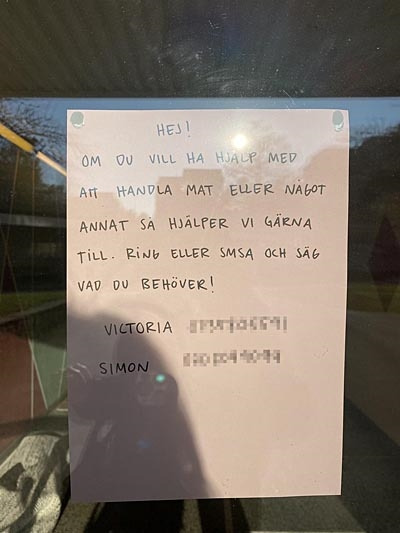 HEJ!
OM DU VILL HA HJÄLP MED
ATT HANDLA MAT ELLER NÅGOT
ANNAT SÅ HJÄLPER VI GÄRNA
TILL. RING ELLER SMSA OCH SÄG
VAD DU BEHÖVER!
VICTORIA
SIMON